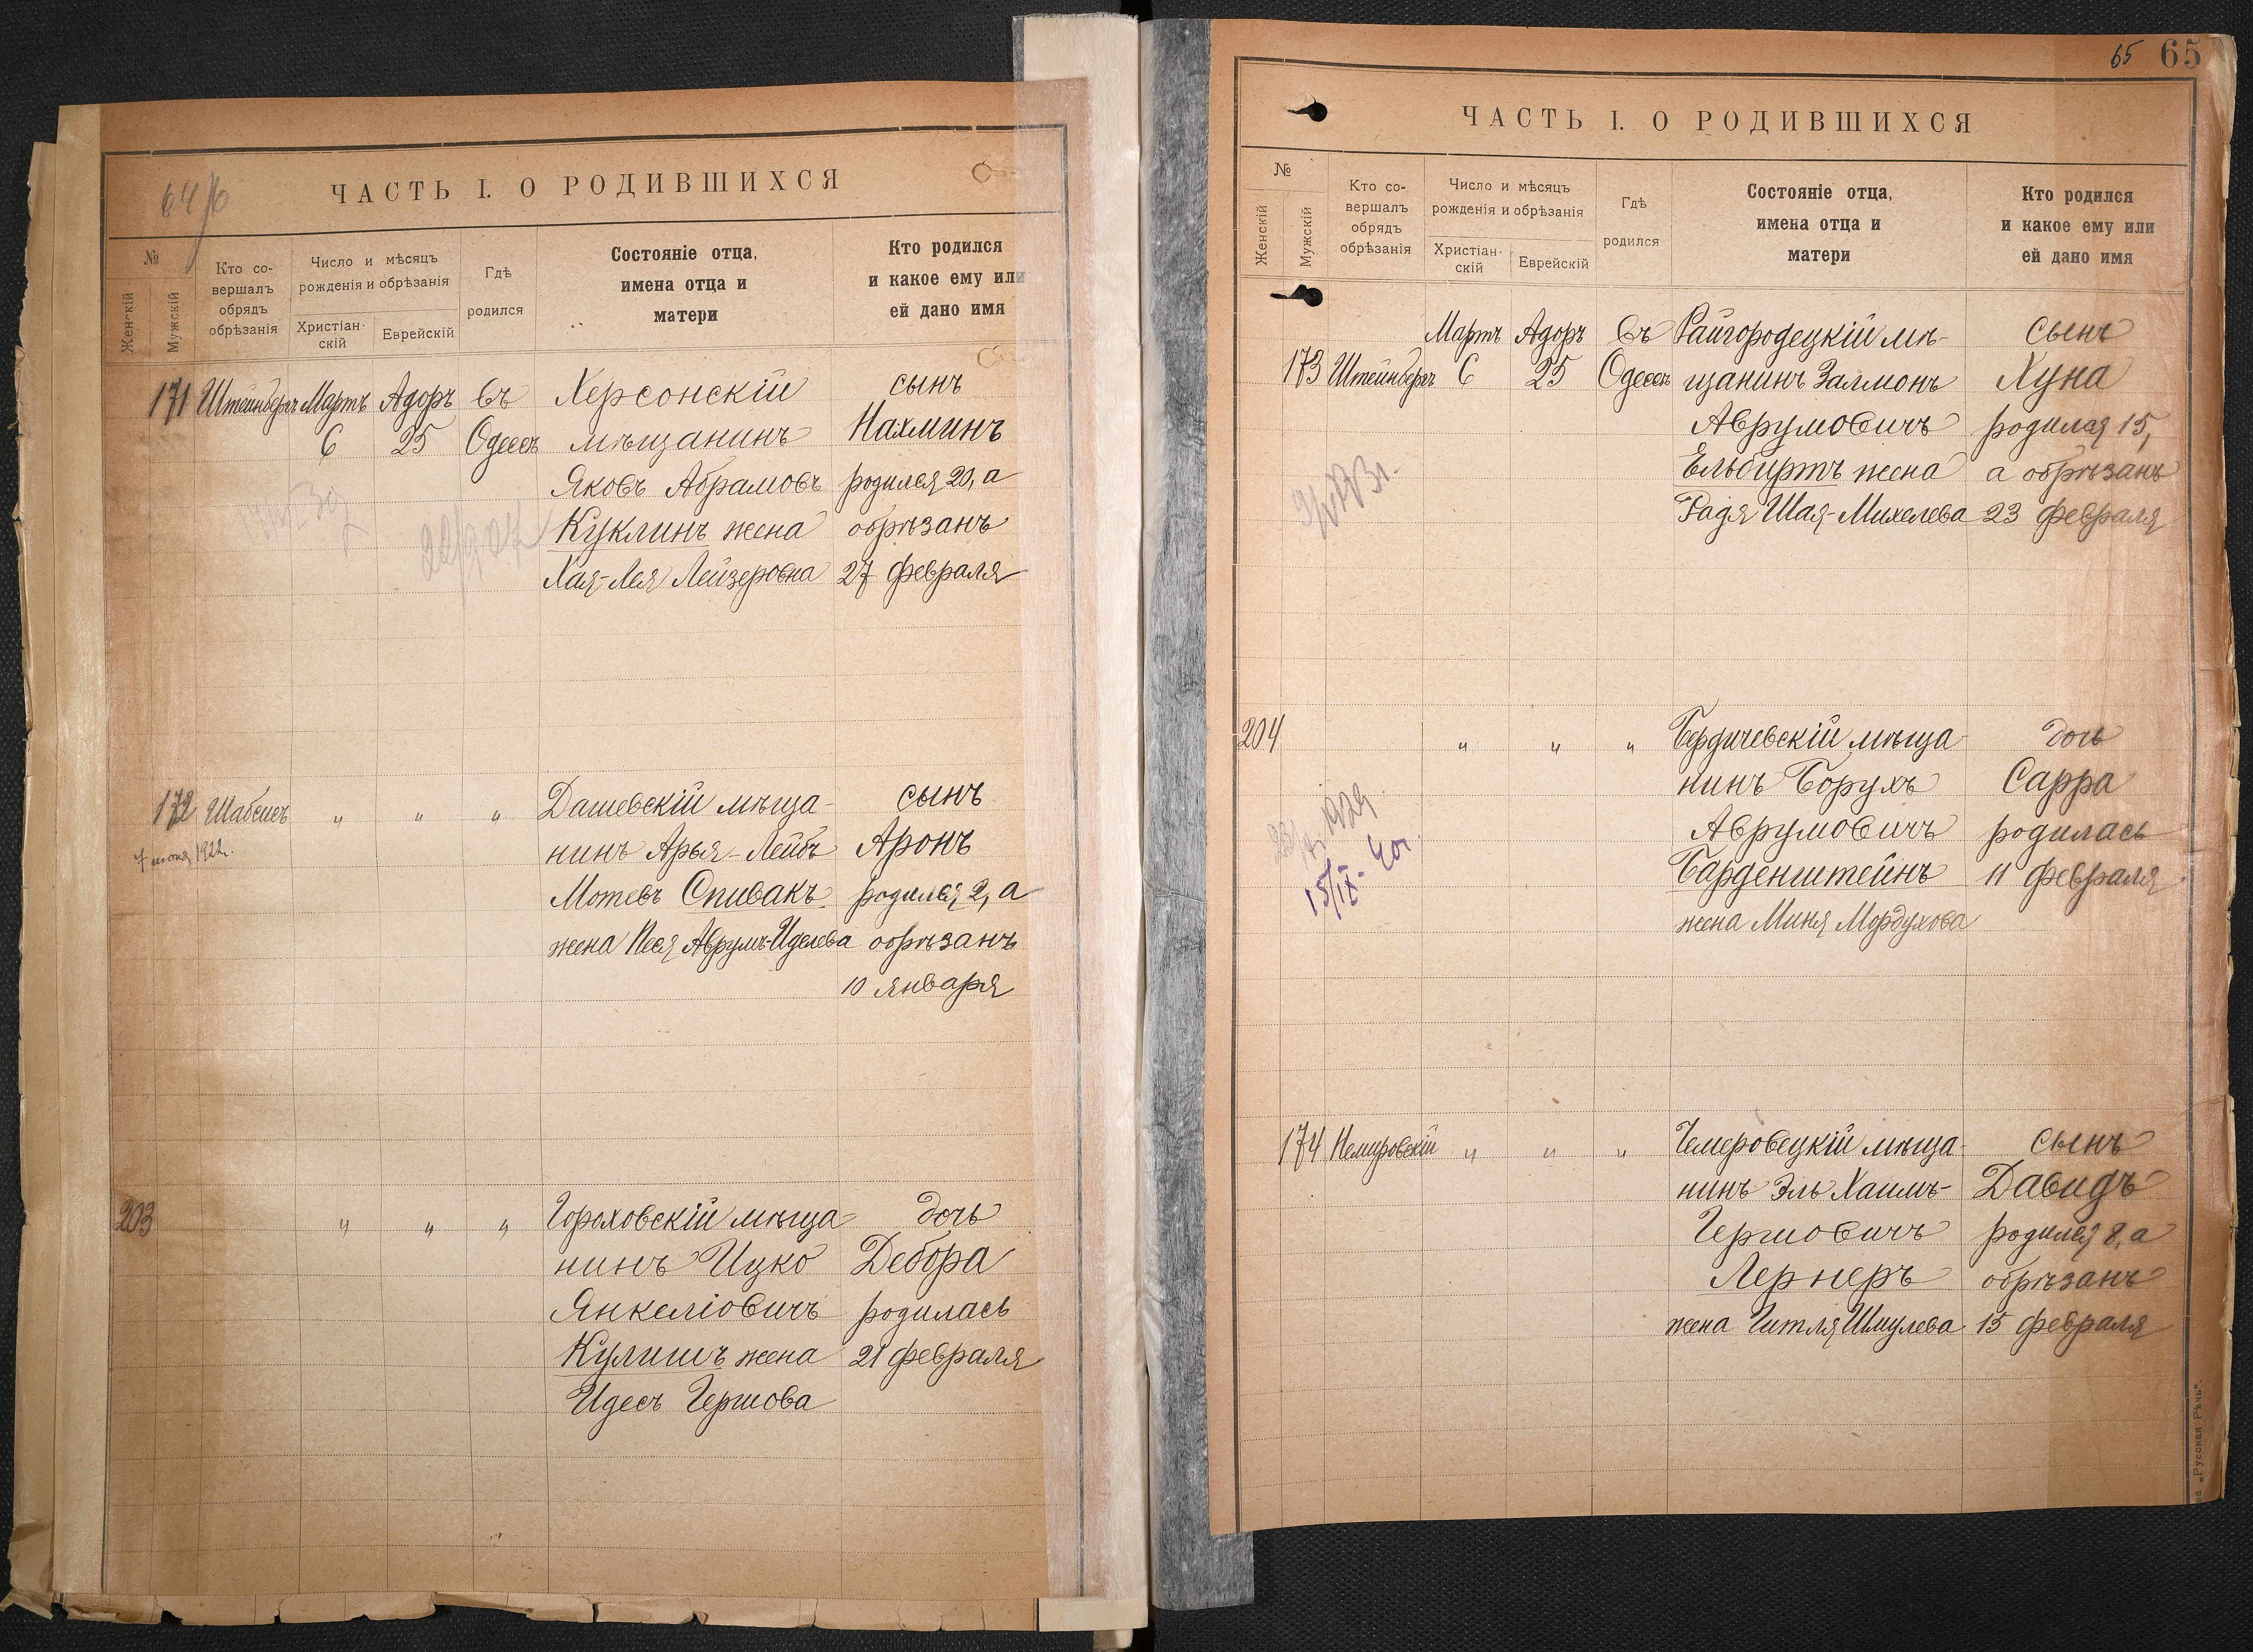 64 об
ЧАСТЬ I. О РОДИВШИХСЯ
№
Женскій
Мужскій
Кто со-
вершалъ
обрядъ
обрѣзанія
Число и мѣсяцъ
рожденія и обрѣзанія
Христіан-
скій
Еврейскій
Гдѣ
родился
Состояніе отца,
имена отца и
матери
Кто родился
и какое ему или
ей дано имя
171 Штейнбергъ Мартъ Адоръ Въ Херсонскій сынъ
6 25 Одессѣ мѣщанинъ Нахминъ
Яковъ Абрамовъ родился 20, а
Куклинъ жена обрѣзанъ
Хая-Лея Лейзеровна 27 февраля
172 Шабсисъ " " " Дашевскій мѣща- сынъ
7 июня 1922г. нинъ Арья-Лейбъ Аронъ
Мотевъ Спивакъ родился 2, а
жена Песя Аврумъ-Иделева обрѣзанъ
10 января
203 " " " Гороховскій мѣща- дочь
нинъ Ицко Дебора
Янкеліовичъ родилась
Кулишъ жена 21 февраля
Идесъ Гершова
65 65
ЧАСТЬ I. О РОДИВШИХСЯ
№
Женскій
Мужскій
Кто со-
вершалъ
обрядъ
обрѣзанія
Число и мѣсяцъ
рожденія и обрѣзанія
Христіан-
скій
Еврейскій
Гдѣ
родился
Состояніе отца,
имена отца и
матери
Кто родился
и какое ему или
ей дано имя
Мартъ Адоръ Въ Райгородецкій мѣ- сынъ
173 Штейнбергъ 6 25 Одессѣ щанинъ Залмонъ Хуна
Аврумовичъ родился 15,
Ельбиртъ жена а обрѣзанъ
Радя Шая-Михелева 23 февраля
204 " " " Бердичевскій мѣща- дочь
нинъ Борухъ Сарра
Аврумовичъ родилась
15/IX-40г. Барденштейнъ 11 февраля
жена Миня Мордухова
174 Немировскій " " " Чемеровецкій мѣща- сынъ
нинъ Эль Хаимъ- Давидъ
Гершовичъ родился 8, а
Лернеръ обрѣзанъ
жена Гитля Шмулева 15 февраля
„Русская Рѣчь".